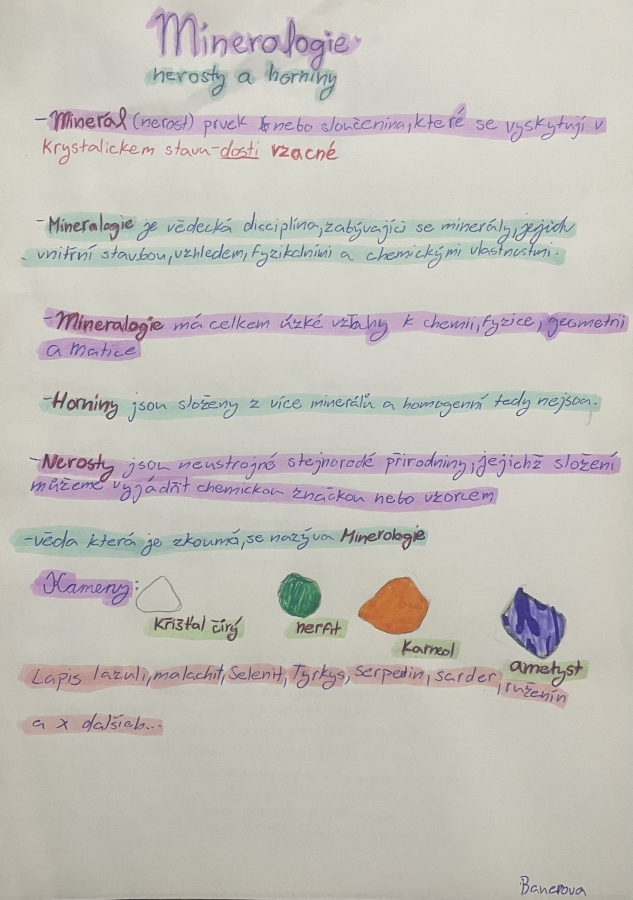 Mineralogie
nerosty a horniny
- Minerál (nerost) prvek nebo sloučenina, které se vyskytují v
krystalickem stavu - dosti vzacné
- Mineralogie je vědecká disciplína, zabývající se minerály, jejich
vnitřní stavbou, vzhledem, fyzikalními a chemickými vlastnostmi.
- Mineralogie má celkem úzké vztahy k chemii, fyzice, geometrii
a matice
- Horniny jsou složeny z více minerálů a homogenní tedy nejsou.
- Nerosty jsou neustrojné stejnorodé přírodniny, jejichž složení
můžeme vyjádřit chemickou značkou nebo vzorcem
- věda která je zkoumá, se nazýva Minerologie
Kameny:
Křišťal čirý
nerfit
karneol
ametyst
Lapis lazuli, malachit, Selenit, Tyrkys, Serpedin, sarder, růženín
a x dalšieb...
Banerova